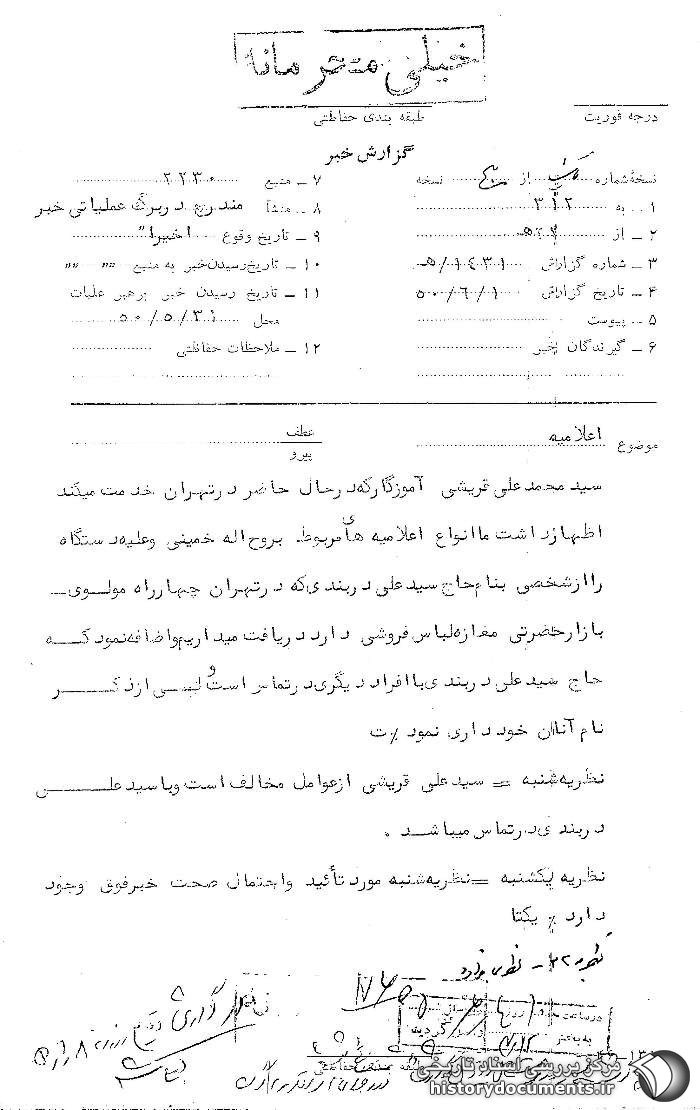 خیلی محرمانه
درجه فوریت
طبقه بندی حفاظتی
گزارش خبر
نسخهٔ شماره از نسخه
۱ ـ به ۳۱۲
۲ ـ از ه‍
۳ ـ شماره گزارش ۱۴۳۱/ه‍
۴ ـ تاریخ گزارش ۵۰/۶/۱
۵ ـ پیوست
۶ ـ گیرندگان خبر
۷ ـ منبع ۲۲۳۰
۸ ـ منشأ مندرج در برگ عملیاتی خبر
۹ ـ تاریخ وقوع اخیراً
۱۰ ـ تاریخ رسیدن خبر به منبع " "
۱۱ ـ تاریخ رسیدن خبر برهبر عملیات
محل ۵۰/۵/۳۱
۱۲ ـ ملاحظات حفاظتی
موضوع اعلامیه
عطف
پیرو
سید محمد علی قریشی آموزگار که در حال حاضر در تهران خدمت میکند
اظهار داشت ما انواع اعلامیه های مربوط بروح اله خمینی و علیه دستگاه
را از شخصی بنام حاج سید علی دربندی که در تهران چهارراه مولوی ـ
بازار حضرتی مغازه لباس فروشی دارد دریافت میداریم و اضافه نمود که
حاج سید علی دربندی با افراد دیگری در تماس است و لیسی از ذکر
نام آنان خود داری نمود % ت
نظریه شنبه = سید علی قریشی از عوامل مخالف است و با سید علی
دربندی در تماس میباشد .
نظریه یکشنبه = نظریه شنبه مورد تأئید و احتمال صحت خبر فوق وجود
دارد % یکتا
طبقه بندی حفاظتی
مرکز بررسی اسناد تاریخی
historydocuments.ir